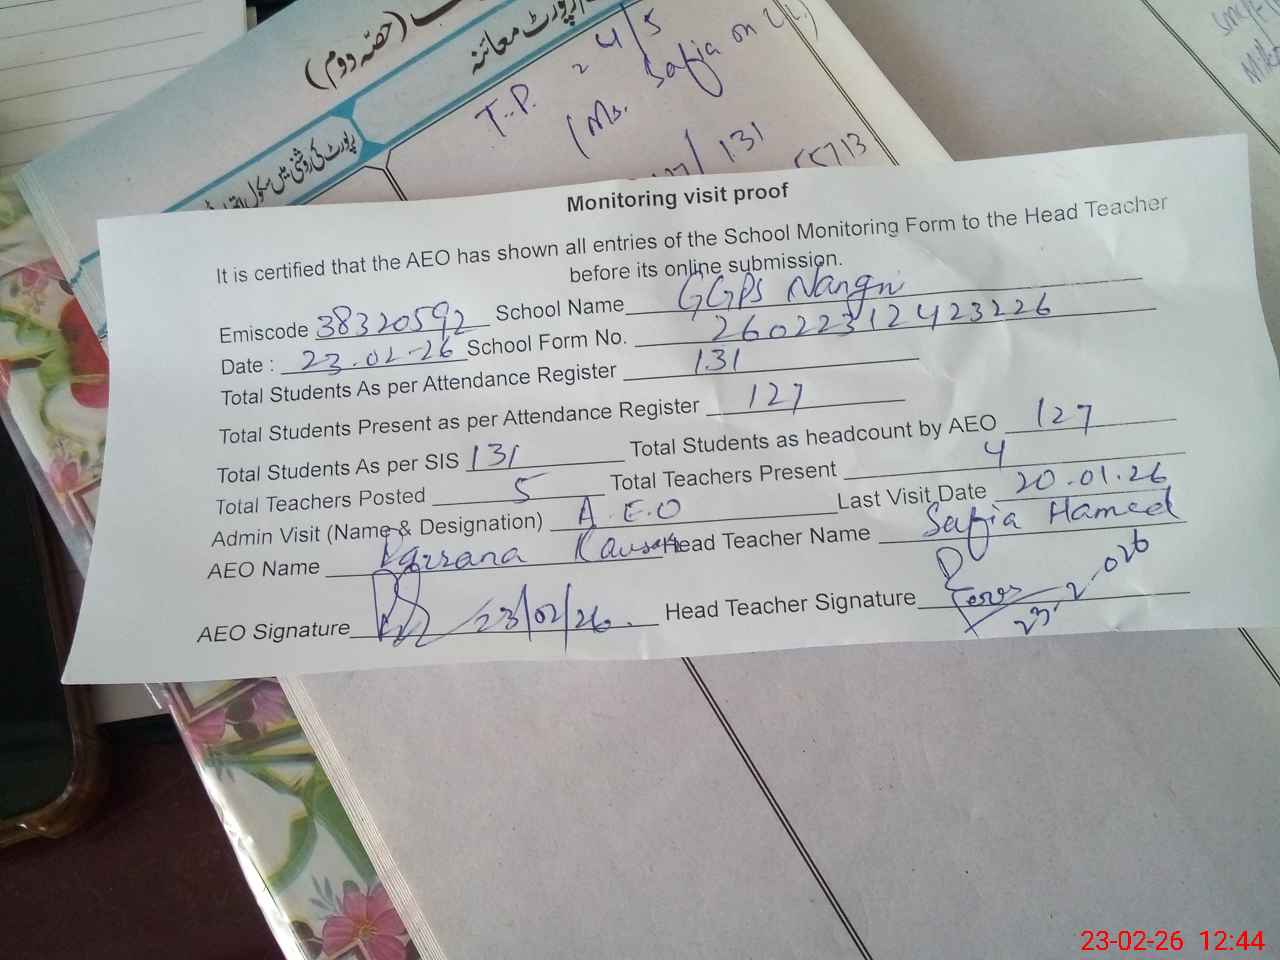 (حصّہ دوم)
رپورٹ معائنہ
رپورٹ کی روشنی میں سکول
T.P. = 4/5
(Ms. Safia on
127/131
55713
Monitoring visit proof
It is certified that the AEO has shown all entries of the School Monitoring Form to the Head Teacher
before its online submission.
Emiscode 38320592 School Name GGPS Nangri
Date : 23.02-26 School Form No. 26022312423226
Total Students As per Attendance Register 131
Total Students Present as per Attendance Register 127
Total Students As per SIS 131 Total Students as headcount by AEO 127
Total Teachers Posted 5 Total Teachers Present 4
Admin Visit (Name & Designation) A.E.O Last Visit Date 20.01.26
AEO Name Farzana Kausar Head Teacher Name Safia Hameed
AEO Signature 23/02/26. Head Teacher Signature 23-2-026
23-02-26 12:44